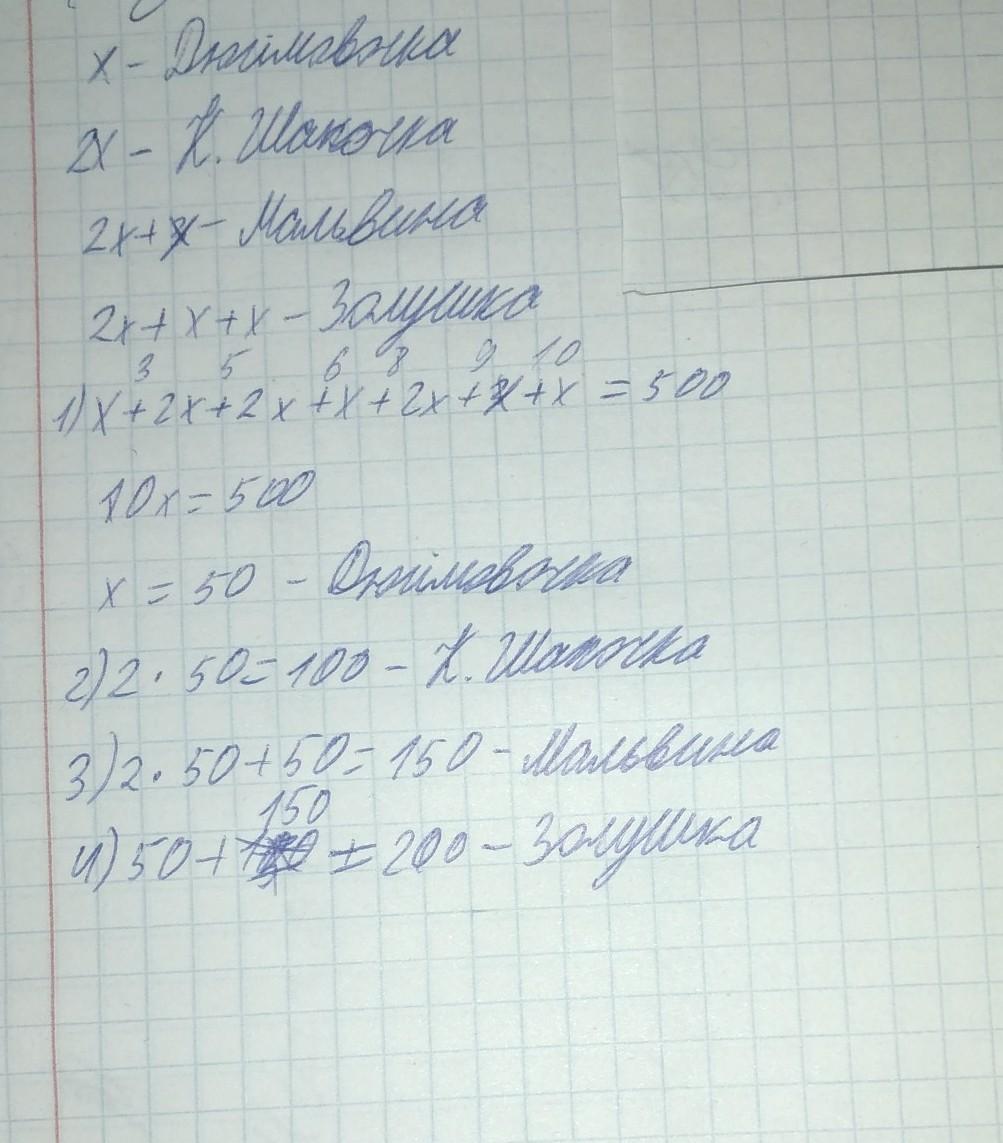 x - Дюймовочка
2x - К. Шапочка
2x + x - Мальвина
2x + x + x - Золушка
3 5 6 8 9 10
1) x + 2x + 2x + x + 2x + x + x = 500
10x = 500
x = 50 - Дюймовочка
2) 2 · 50 = 100 - К. Шапочка
3) 2 · 50 + 50 = 150 - Мальвина
150
4) 50 + = 200 - Золушка